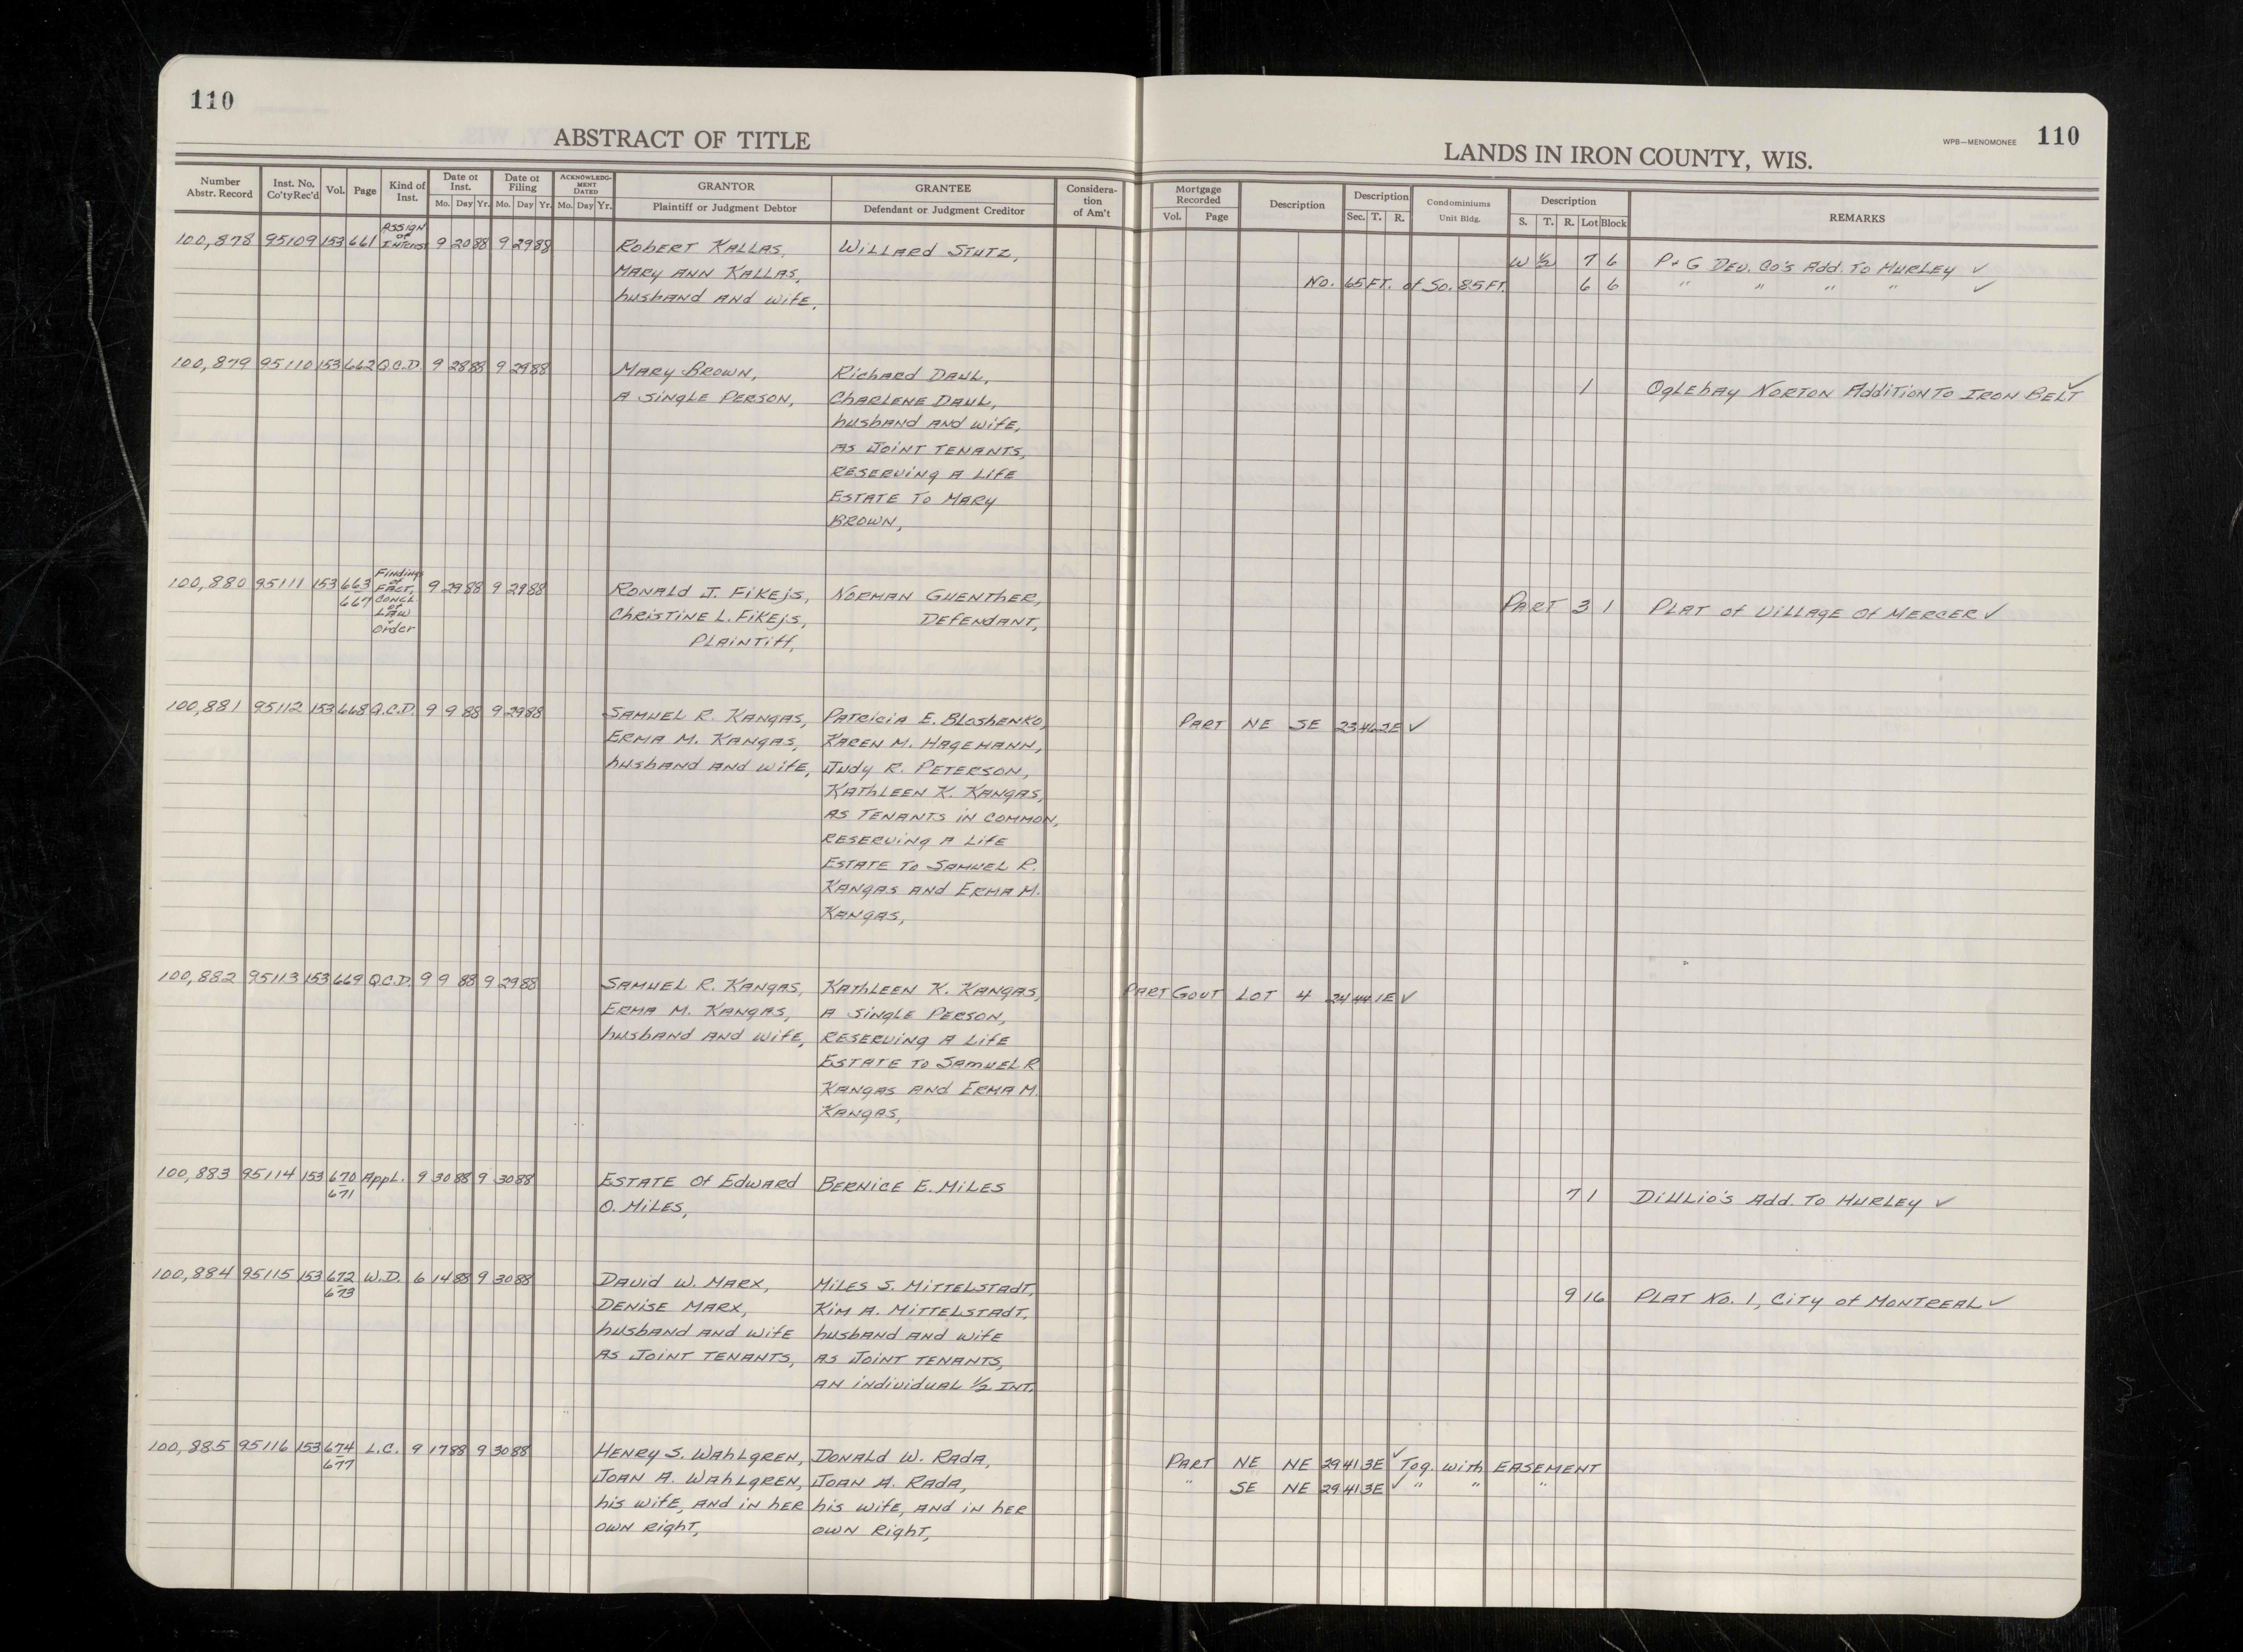 110
ABSTRACT OF TITLE
Number Abstr. Record Inst. No. Co'ty Rec'd Vol. Page Kind of Inst. Date of Inst. Mo. Day Yr. Date of Filing Mo. Day Yr. ACKNOWLEDGMENT DATED Mo. Day Yr. GRANTOR Plaintiff or Judgment Debtor GRANTEE Defendant or Judgment Creditor Considera-tion of Am't
WPB—MENOMONEE 110
LANDS IN IRON COUNTY, WIS.
Mortgage Recorded Vol. Page Description Description Sec. T. R. Condominiums Unit Bldg. Description S. T. R. Lot Block REMARKS
100,878 95109 153 661 Assign of Interest 9 20 88 9 29 88 Robert Kallas, Willard Stutz,
W 1/2 7 6 P + G Dev. Co's Add. To Hurley ✓
Mary Ann Kallas,
No. 65 FT. of So. 85 FT. 6 6 " " " " ✓
husband and wife,
100,879 95110 153 662 Q.C.D. 9 28 88 9 29 88 Mary Brown, Richard Daul,
1 Oglebay Norton Addition To Iron Belt ✓
A single Person, Charlene Daul,
husband and wife,
as Joint Tenants,
Reserving a Life
Estate To Mary
Brown,
100,880 95111 153 663 667 Findings of Fact, Concl. of Law & Order 9 29 88 9 29 88 Ronald J. Fikejs, Norman Guenther,
Part 3 1 Plat of Village of Mercer ✓
Christine L. Fikejs, Defendant,
Plaintiff,
100,881 95112 153 668 Q.C.D. 9 9 88 9 29 88 Samuel R. Kangas, Patricia E. Bloshenko,
Part NE SE 23 46 2E ✓
Erma M. Kangas, Karen M. Hagemann,
husband and wife, Judy R. Peterson,
Kathleen K. Kangas,
as Tenants in Common,
Reserving a Life
Estate to Samuel R.
Kangas and Erma M.
Kangas,
100,882 95113 153 669 Q.C.D. 9 9 88 9 29 88 Samuel R. Kangas, Kathleen K. Kangas,
Part Gout Lot 4 24 44 1E ✓
Erma M. Kangas, a single Person,
husband and wife, Reserving a Life
Estate to Samuel R
Kangas and Erma M.
Kangas,
100,883 95114 153 670 671 Appl. 9 30 88 9 30 88 Estate of Edward Bernice E. Miles
7 1 DiUlio's Add. To Hurley ✓
O. Miles,
100,884 95115 153 672 673 W.D. 6 14 88 9 30 88 David W. Marx, Miles S. Mittelstadt,
9 16 Plat No. 1, City of Montreal ✓
Denise Marx, Kim A. Mittelstadt,
husband and wife husband and wife
as Joint Tenants, as Joint Tenants,
an individual 1/2 Int.
100,885 95116 153 674 677 L.C. 9 17 88 9 30 88 Henry S. Wahlgren, Donald W. Rada,
Part NE NE 29 41 3E ✓ Tog. with Easement
Joan A. Wahlgren, Joan A. Rada,
" SE NE 29 41 3E ✓ " " "
his wife, and in her his wife, and in her
own Right, own Right,